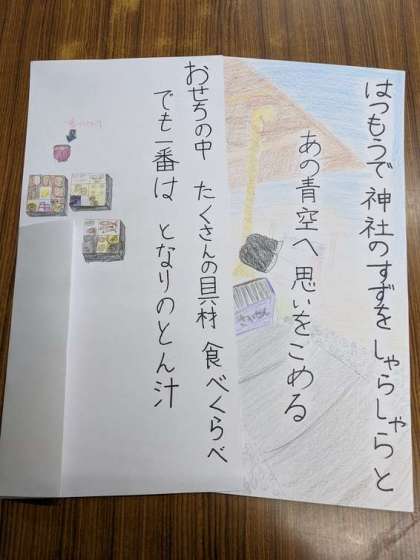 はつもうで 神社のすずを しゃらしゃらと
あの青空へ 思いをこめる
おせちの中 たくさんの具材 食べくらべ
でも一番は となりのとん汁